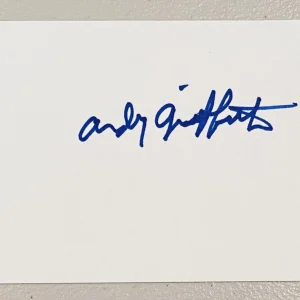 Andy Griffith